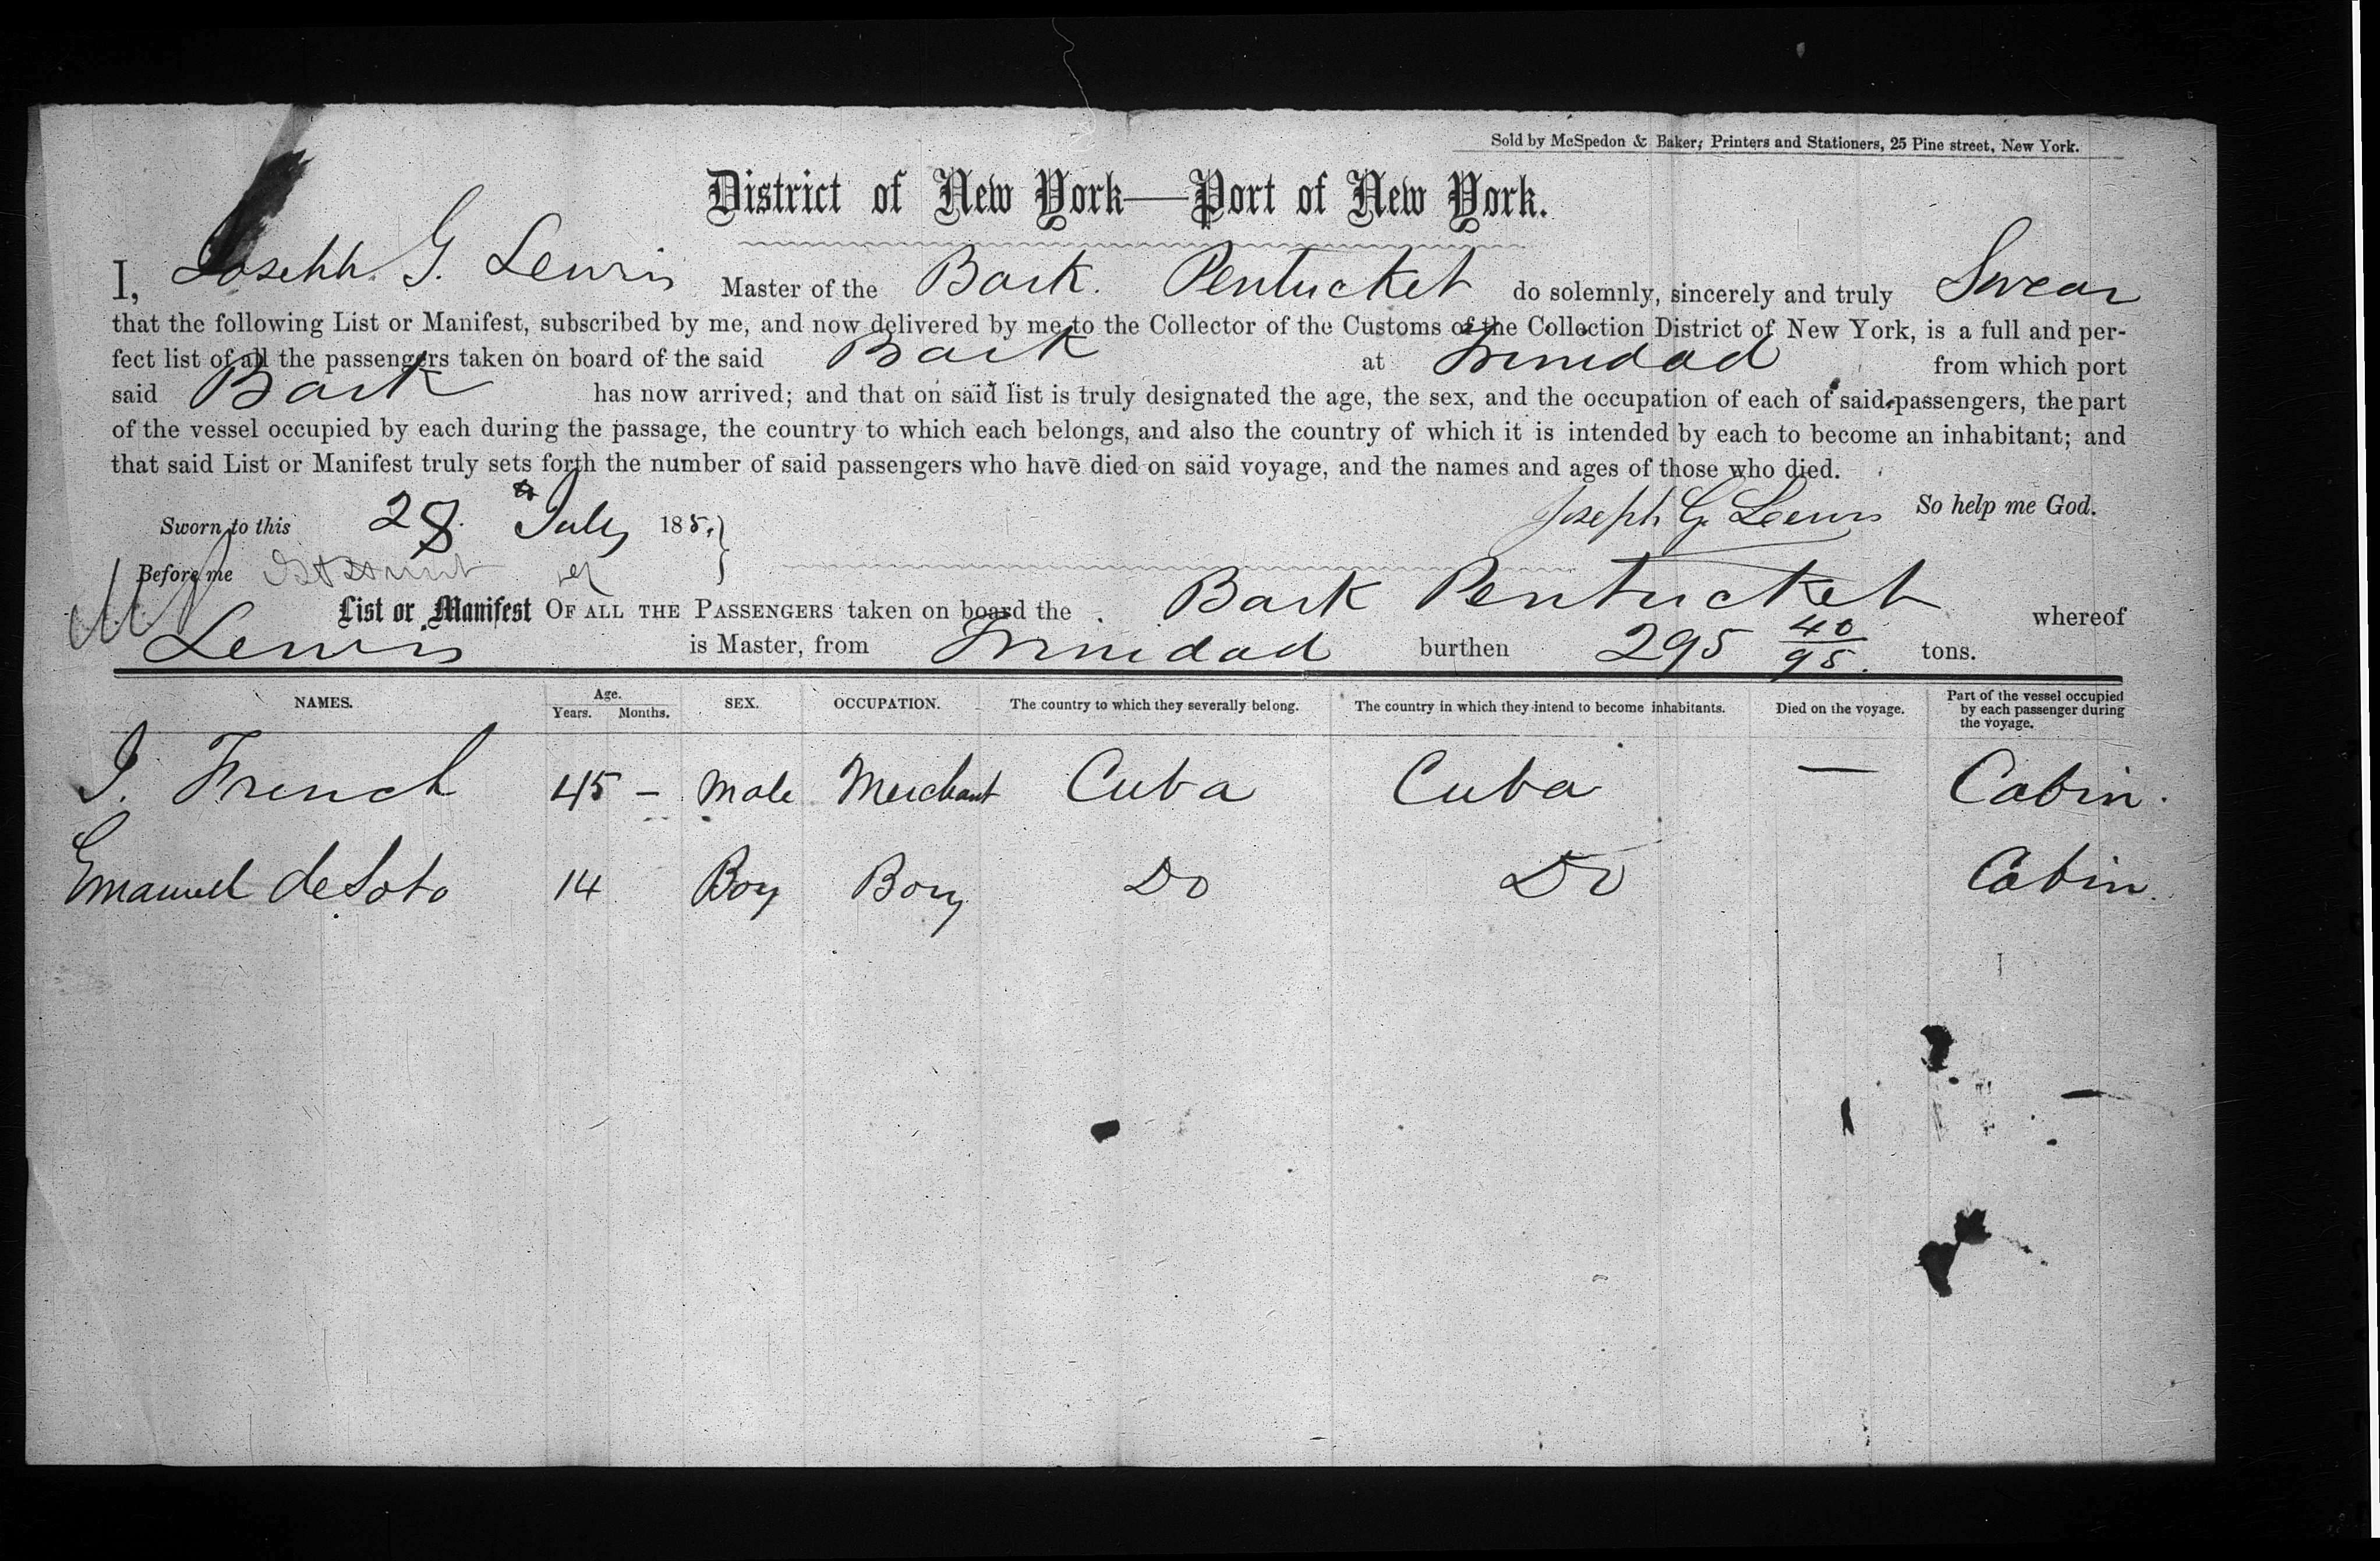 Sold by McSpedon & Baker, Printers and Stationers, 25 Pine street, New York.
District of New York—Port of New York.
I, Joseph G. Lewis Master of the Bark. Pentucket do solemnly, sincerely and truly Swear
that the following List or Manifest, subscribed by me, and now delivered by me to the Collector of the Customs of the Collection District of New York, is a full and per-
fect list of all the passengers taken on board of the said Bark at Trinidad from which port
said Bark has now arrived; and that on said list is truly designated the age, the sex, and the occupation of each of said passengers, the part
of the vessel occupied by each during the passage, the country to which each belongs, and also the country of which it is intended by each to become an inhabitant; and
that said List or Manifest truly sets forth the number of said passengers who have died on said voyage, and the names and ages of those who died.
So help me God.
Sworn to this 28 July 185 Joseph G. Lewis
Before me
List or Manifest OF ALL THE PASSENGERS taken on board the Bark Pentucket whereof
Lewis is Master, from Trinidad burthen 295 40/95 tons.
NAMES. Age. Years. Months. SEX. OCCUPATION. The country to which they severally belong. The country in which they intend to become inhabitants. Died on the voyage. Part of the vessel occupied by each passenger during the voyage.
J. French 45 – Male Merchant Cuba Cuba — Cabin.
Emanuel de Soto 14 Boy Boy Do Do Cabin.